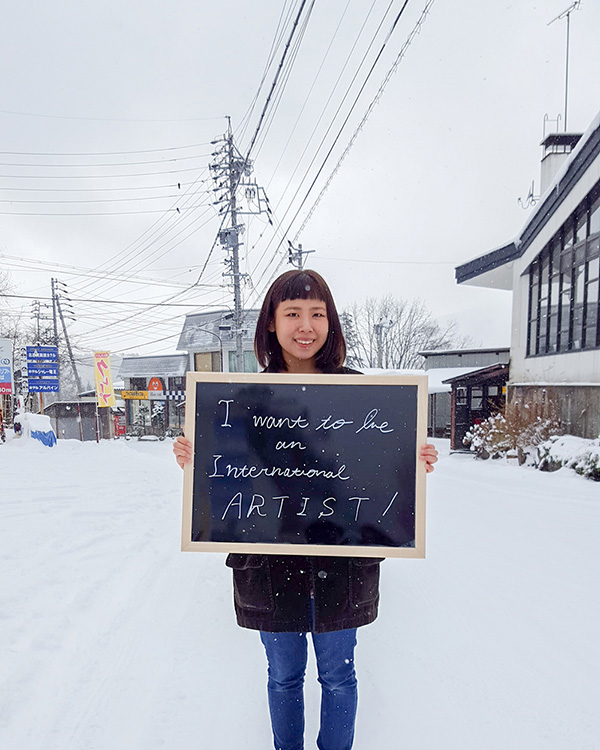 I want to be
an
International
ARTIST!